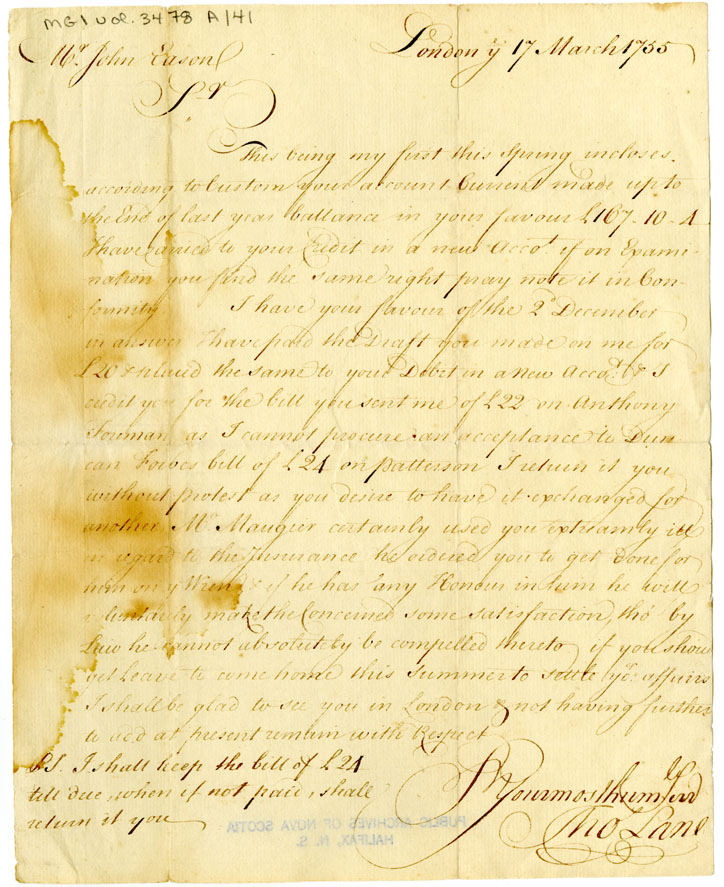 MG1 Vol. 3478 A/41
London ye 17 March 1755
Mr. John Eason
Sr
This being my first this Spring incloses
according to Custom your account Current made up to
the End of last year ballance in your favour £167-10-4
I have carried to your Credit in a new Accot. if on Exami-
nation you find the same right pray note it in Con-
formity I have your favour of the 2d December
in answer I have paid the Draft you made on me for
£20 & placed the same to your Debet in a new Accot. & I
credit you for the bill you sent me of £22 on Anthony
as I cannot procure an acceptance to Dun
can bill of £24 on Patterson I return it you
without protest as you desire to have it exchanged for
another Mr Maugier certainly used you extreamly ill
in regard to the Insurance he ordered you to get done for
him on ye & if he has any Honour in him he will
voluntarily make the Concerned some satisfaction, tho' by
Law he cannot absolutely be compelled thereto, if you shou'd
get Leave to come home this Summer to settle yr. affairs
I shall be glad to see you in London & not having further
to add at present remain with Respect
Sr Your most hum Serv
Tho Lane
PS. I shall keep the bill of £24
till due, when if not paid, shall
return it you
PUBLIC ARCHIVES OF NOVA SCOTIA
HALIFAX, N. S.